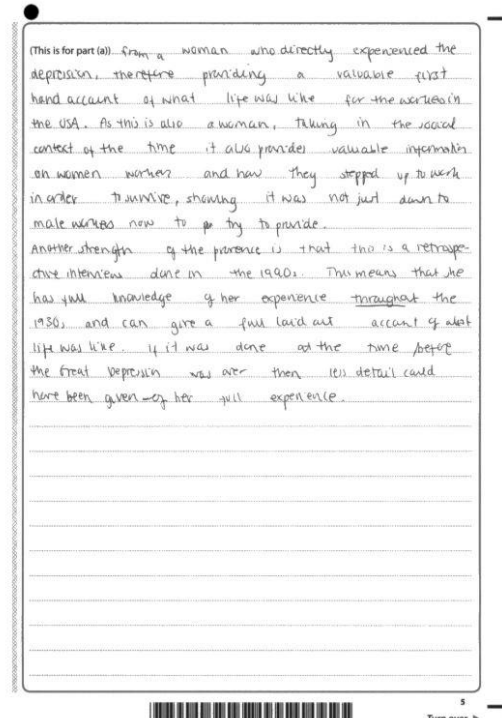 (This is for part (a)) from a woman who directly experienced the
depression, therefore providing a valuable first
hand account of what life was like for the workers in
the USA. As this is also a woman, taking in the social
context of the time it also provides valuable information
on women workers and how they stepped up to work
in order to survive, showing it was not just down to
male workers now to try to provide.
Another strength of the provence is that this is a retrospe-
ctive interview done in the 1990s. This means that she
has full knowledge of her experience throughout the
1930s and can give a full laid out account of what
life was like. If it was done at the time before
the Great Depression was over then less detail could
have been given of her full experience.
5
Turn over